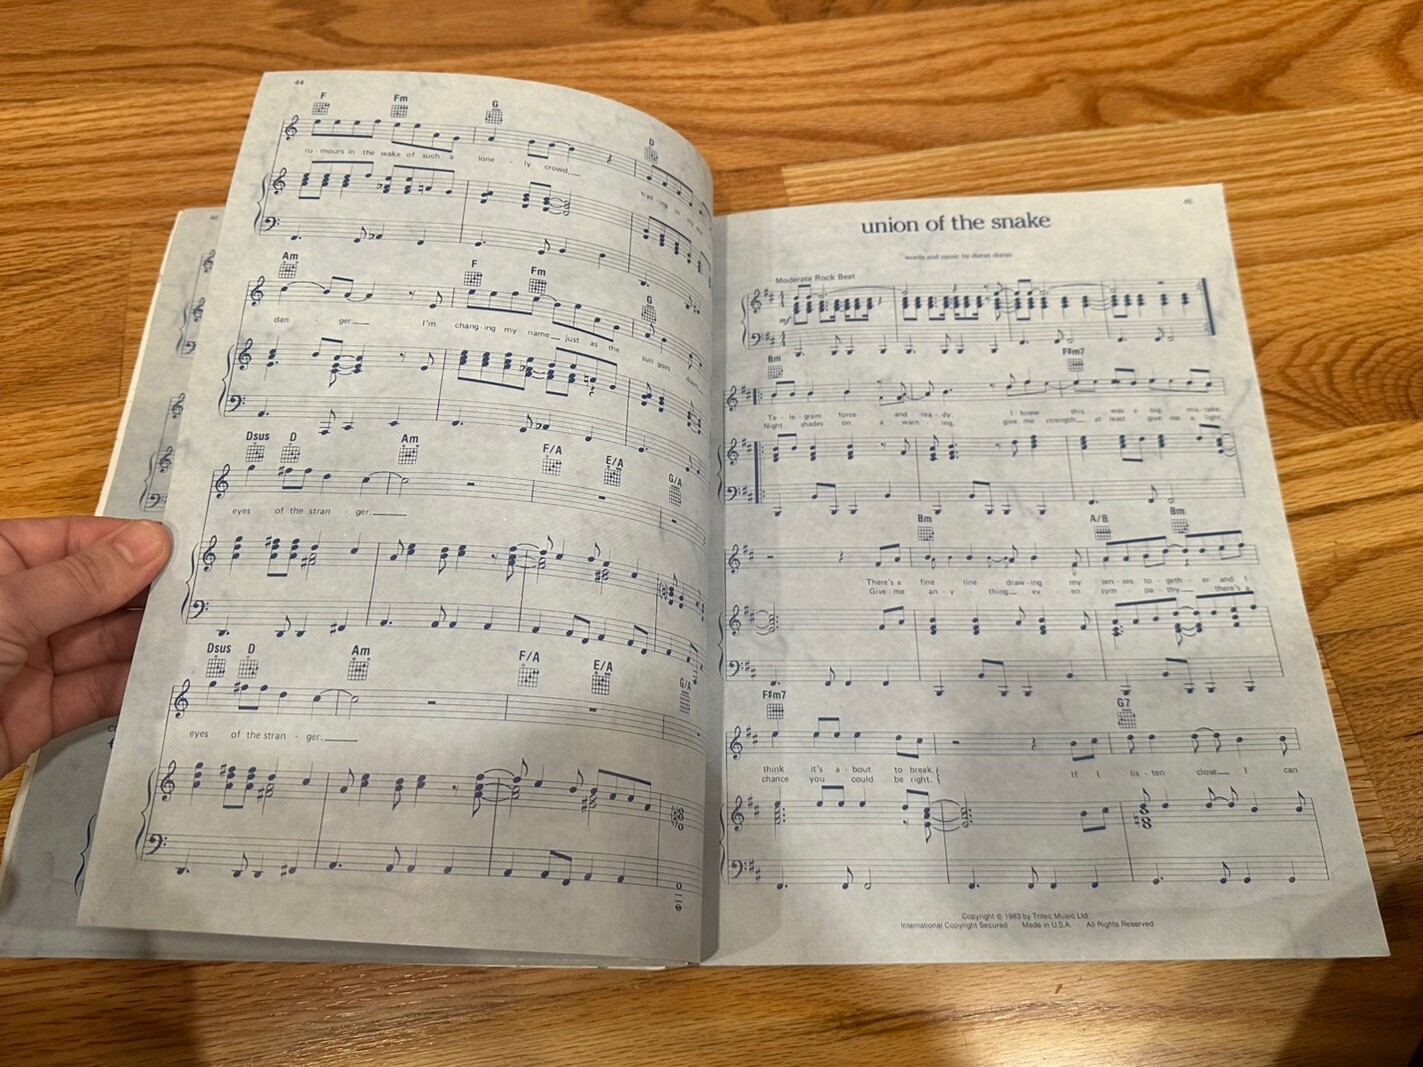 44
F Fm G D
ru - mours in the wake of such a lone - ly crowd,
trad - ing in my
Am F Fm G
dan ger. I'm chang - ing my name just as the sun goes down,
Dsus D Am F/A E/A G/A
eyes of the stran - ger.
Dsus D Am F/A E/A G/A
eyes of the stran - ger.
40
45
union of the snake
words and music by duran duran
Moderate Rock Beat
mf
Bm F#m7
Te - le - gram force and rea - dy. I knew this was a big mis - take.
Night shades on a warn - ing, give me strength at least give me a light.
Bm A/B Bm
There's a fine line draw - ing my sen - ses to - geth - er and I
Give me an - y - thing ev - en sym pa - thy there's a
F#m7 G7
think it's a - bout to break. If I lis - ten close I can
chance you could be right.
Copyright © 1983 by Tritec Music Ltd.
International Copyright Secured Made in U.S.A. All Rights Reserved